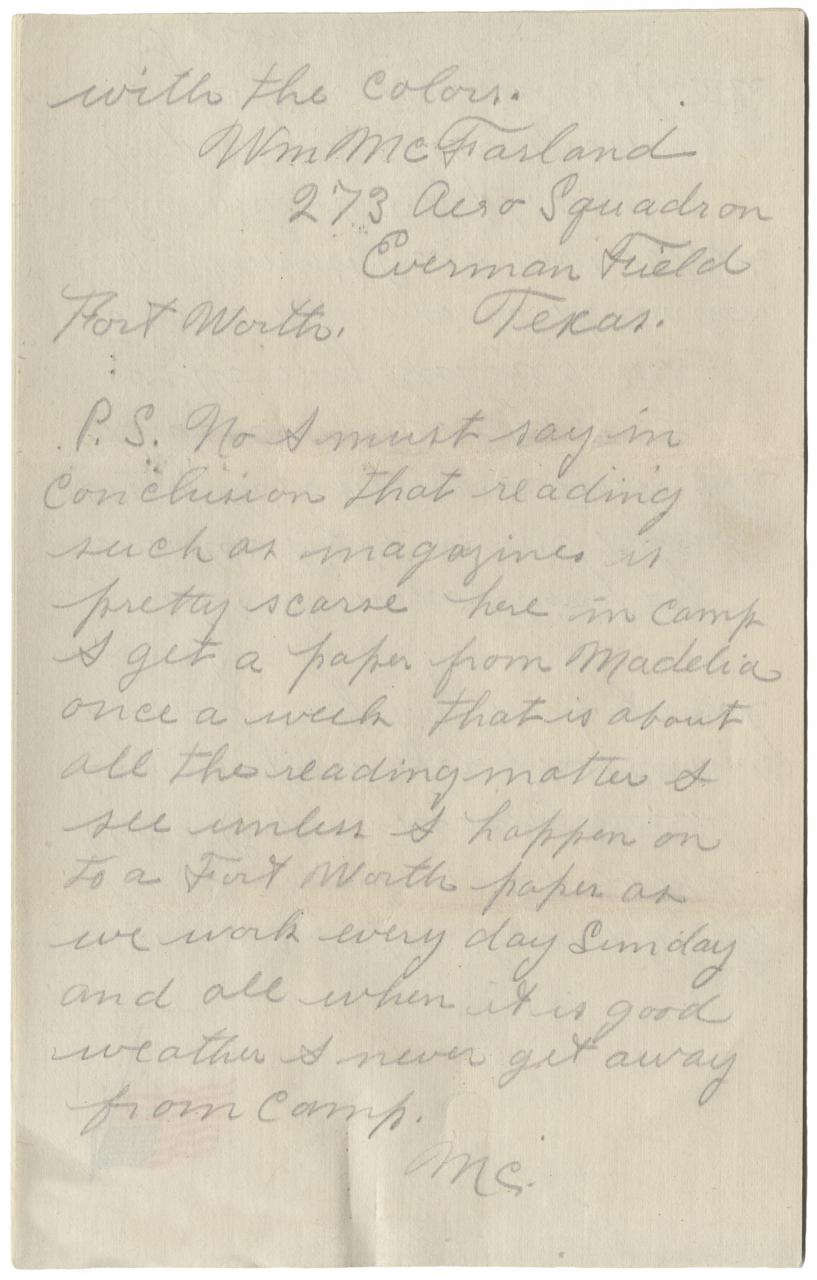 with the colors.
Wm McFarland
273 Aero Squadron
Everman Field
Fort Worth. Texas.
P.S. No I must say in
conclusion that reading
such as magazines is
pretty scarse here in camp
I get a paper from Madelia
once a week that is about
all the reading matter I
see unless I happen on
to a Fort Worth paper as
we work every day Sunday
and all when it is good
weather I never get away
from camp.
Mc.